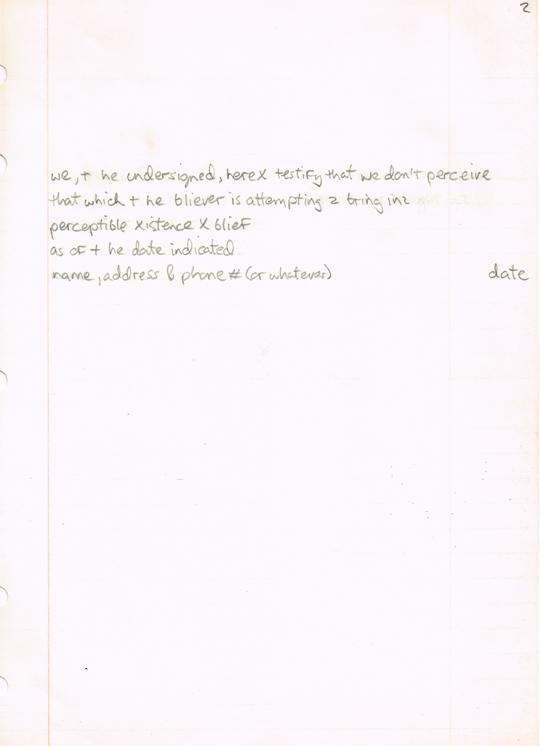 2
we, t he undersigned, hereX testify that we don't perceive
that which t he bliever is attempting 2 bring in2
perceptible xistence X blief
as of t he date indicated
name, address & phone # (or whatever) date